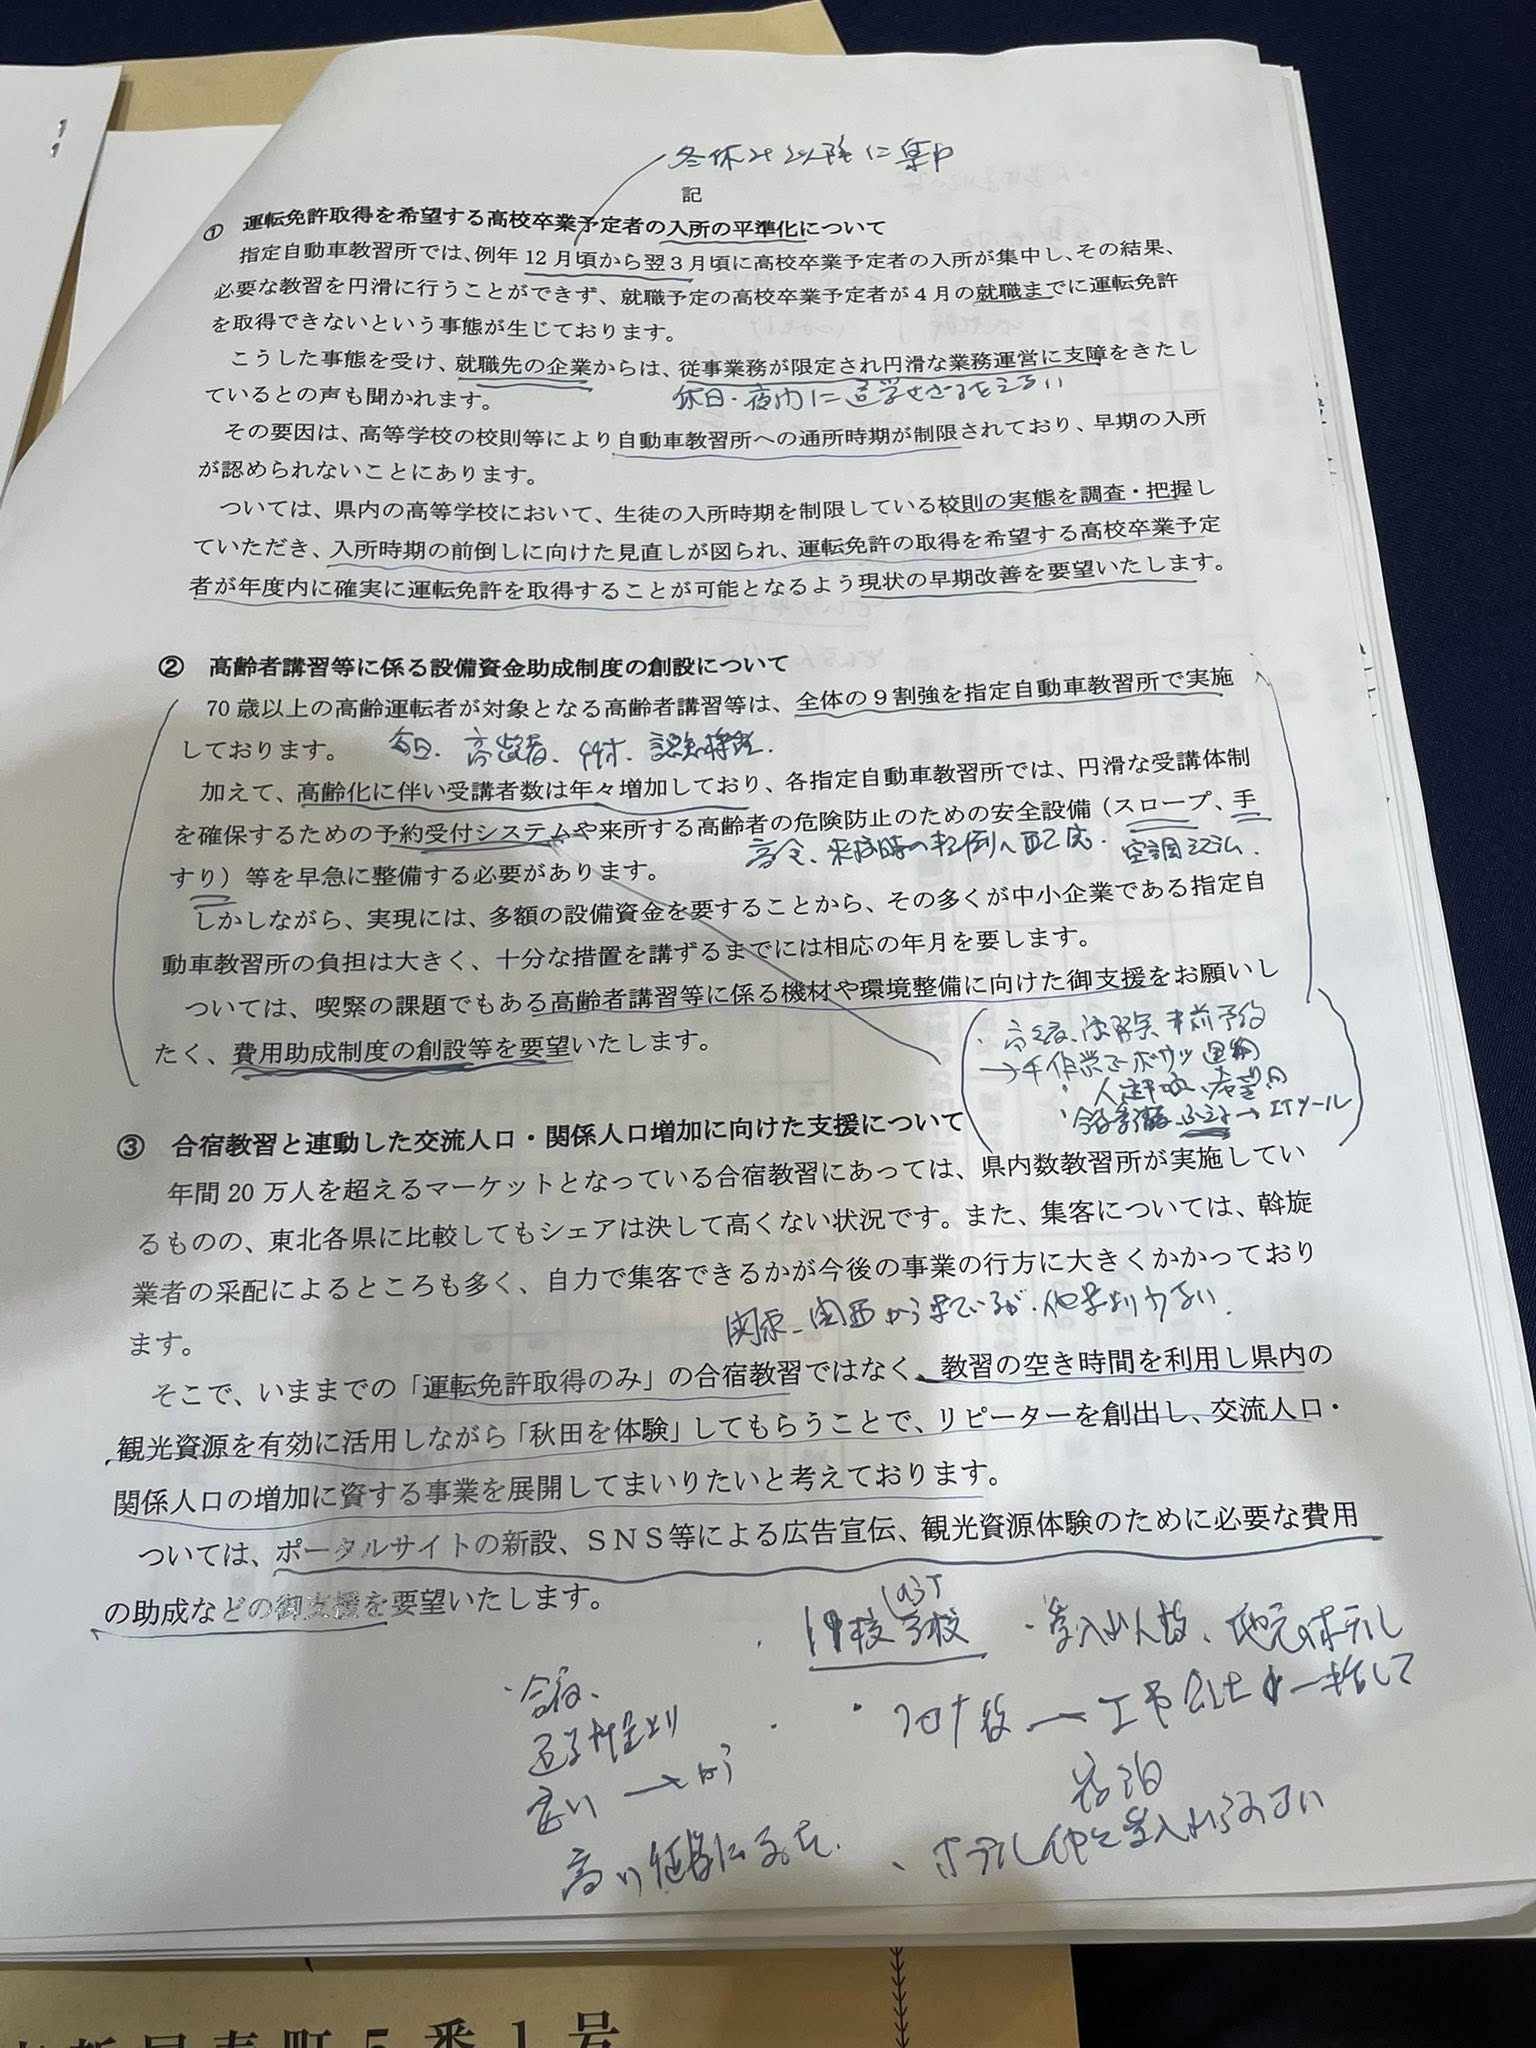 1
1
冬休み以降に集中
記
① 運転免許取得を希望する高校卒業予定者の入所の平準化について
指定自動車教習所では、例年12月頃から翌3月頃に高校卒業予定者の入所が集中し、その結果、
必要な教習を円滑に行うことができず、就職予定の高校卒業予定者が4月の就職までに運転免許
を取得できないという事態が生じております。
こうした事態を受け、就職先の企業からは、従事業務が限定され円滑な業務運営に支障をきたし
ているとの声も聞かれます。
休日・夜間に通学せざるをえない
その要因は、高等学校の校則等により自動車教習所への通所時期が制限されており、早期の入所
が認められないことにあります。
ついては、県内の高等学校において、生徒の入所時期を制限している校則の実態を調査・把握し
ていただき、入所時期の前倒しに向けた見直しが図られ、運転免許の取得を希望する高校卒業予定
者が年度内に確実に運転免許を取得することが可能となるよう現状の早期改善を要望いたします。
② 高齢者講習等に係る設備資金助成制度の創設について
70歳以上の高齢運転者が対象となる高齢者講習等は、全体の9割強を指定自動車教習所で実施
しております。
毎日、高齢者、認知機能
加えて、高齢化に伴い受講者数は年々増加しており、各指定自動車教習所では、円滑な受講体制
を確保するための予約受付システムや来所する高齢者の危険防止のための安全設備（スロープ、手
すり）等を早急に整備する必要があります。
来校時の転倒へ配慮・空調
しかしながら、実現には、多額の設備資金を要することから、その多くが中小企業である指定自
動車教習所の負担は大きく、十分な措置を講ずるまでには相応の年月を要します。
ついては、喫緊の課題でもある高齢者講習等に係る機材や環境整備に向けた御支援をお願いし
たく、費用助成制度の創設等を要望いたします。
事前予約
→手作業で
→ITツール
③ 合宿教習と連動した交流人口・関係人口増加に向けた支援について
年間20万人を超えるマーケットとなっている合宿教習にあっては、県内数教習所が実施してい
るものの、東北各県に比較してもシェアは決して高くない状況です。また、集客については、斡旋
業者の采配によるところも多く、自力で集客できるかが今後の事業の行方に大きくかかっており
ます。
関東、関西から来ているが、他県より少ない。
そこで、いままでの「運転免許取得のみ」の合宿教習ではなく、教習の空き時間を利用し県内の
観光資源を有効に活用しながら「秋田を体験」してもらうことで、リピーターを創出し、交流人口・
関係人口の増加に資する事業を展開してまいりたいと考えております。
ついては、ポータルサイトの新設、SNS等による広告宣伝、観光資源体験のために必要な費用
の助成などの御支援を要望いたします。
・受入れ人数、地元のホテル
・合宿、
・コロナ後→工事会社が一括して
通学
安い→
宿泊
・ホテル
5番1号